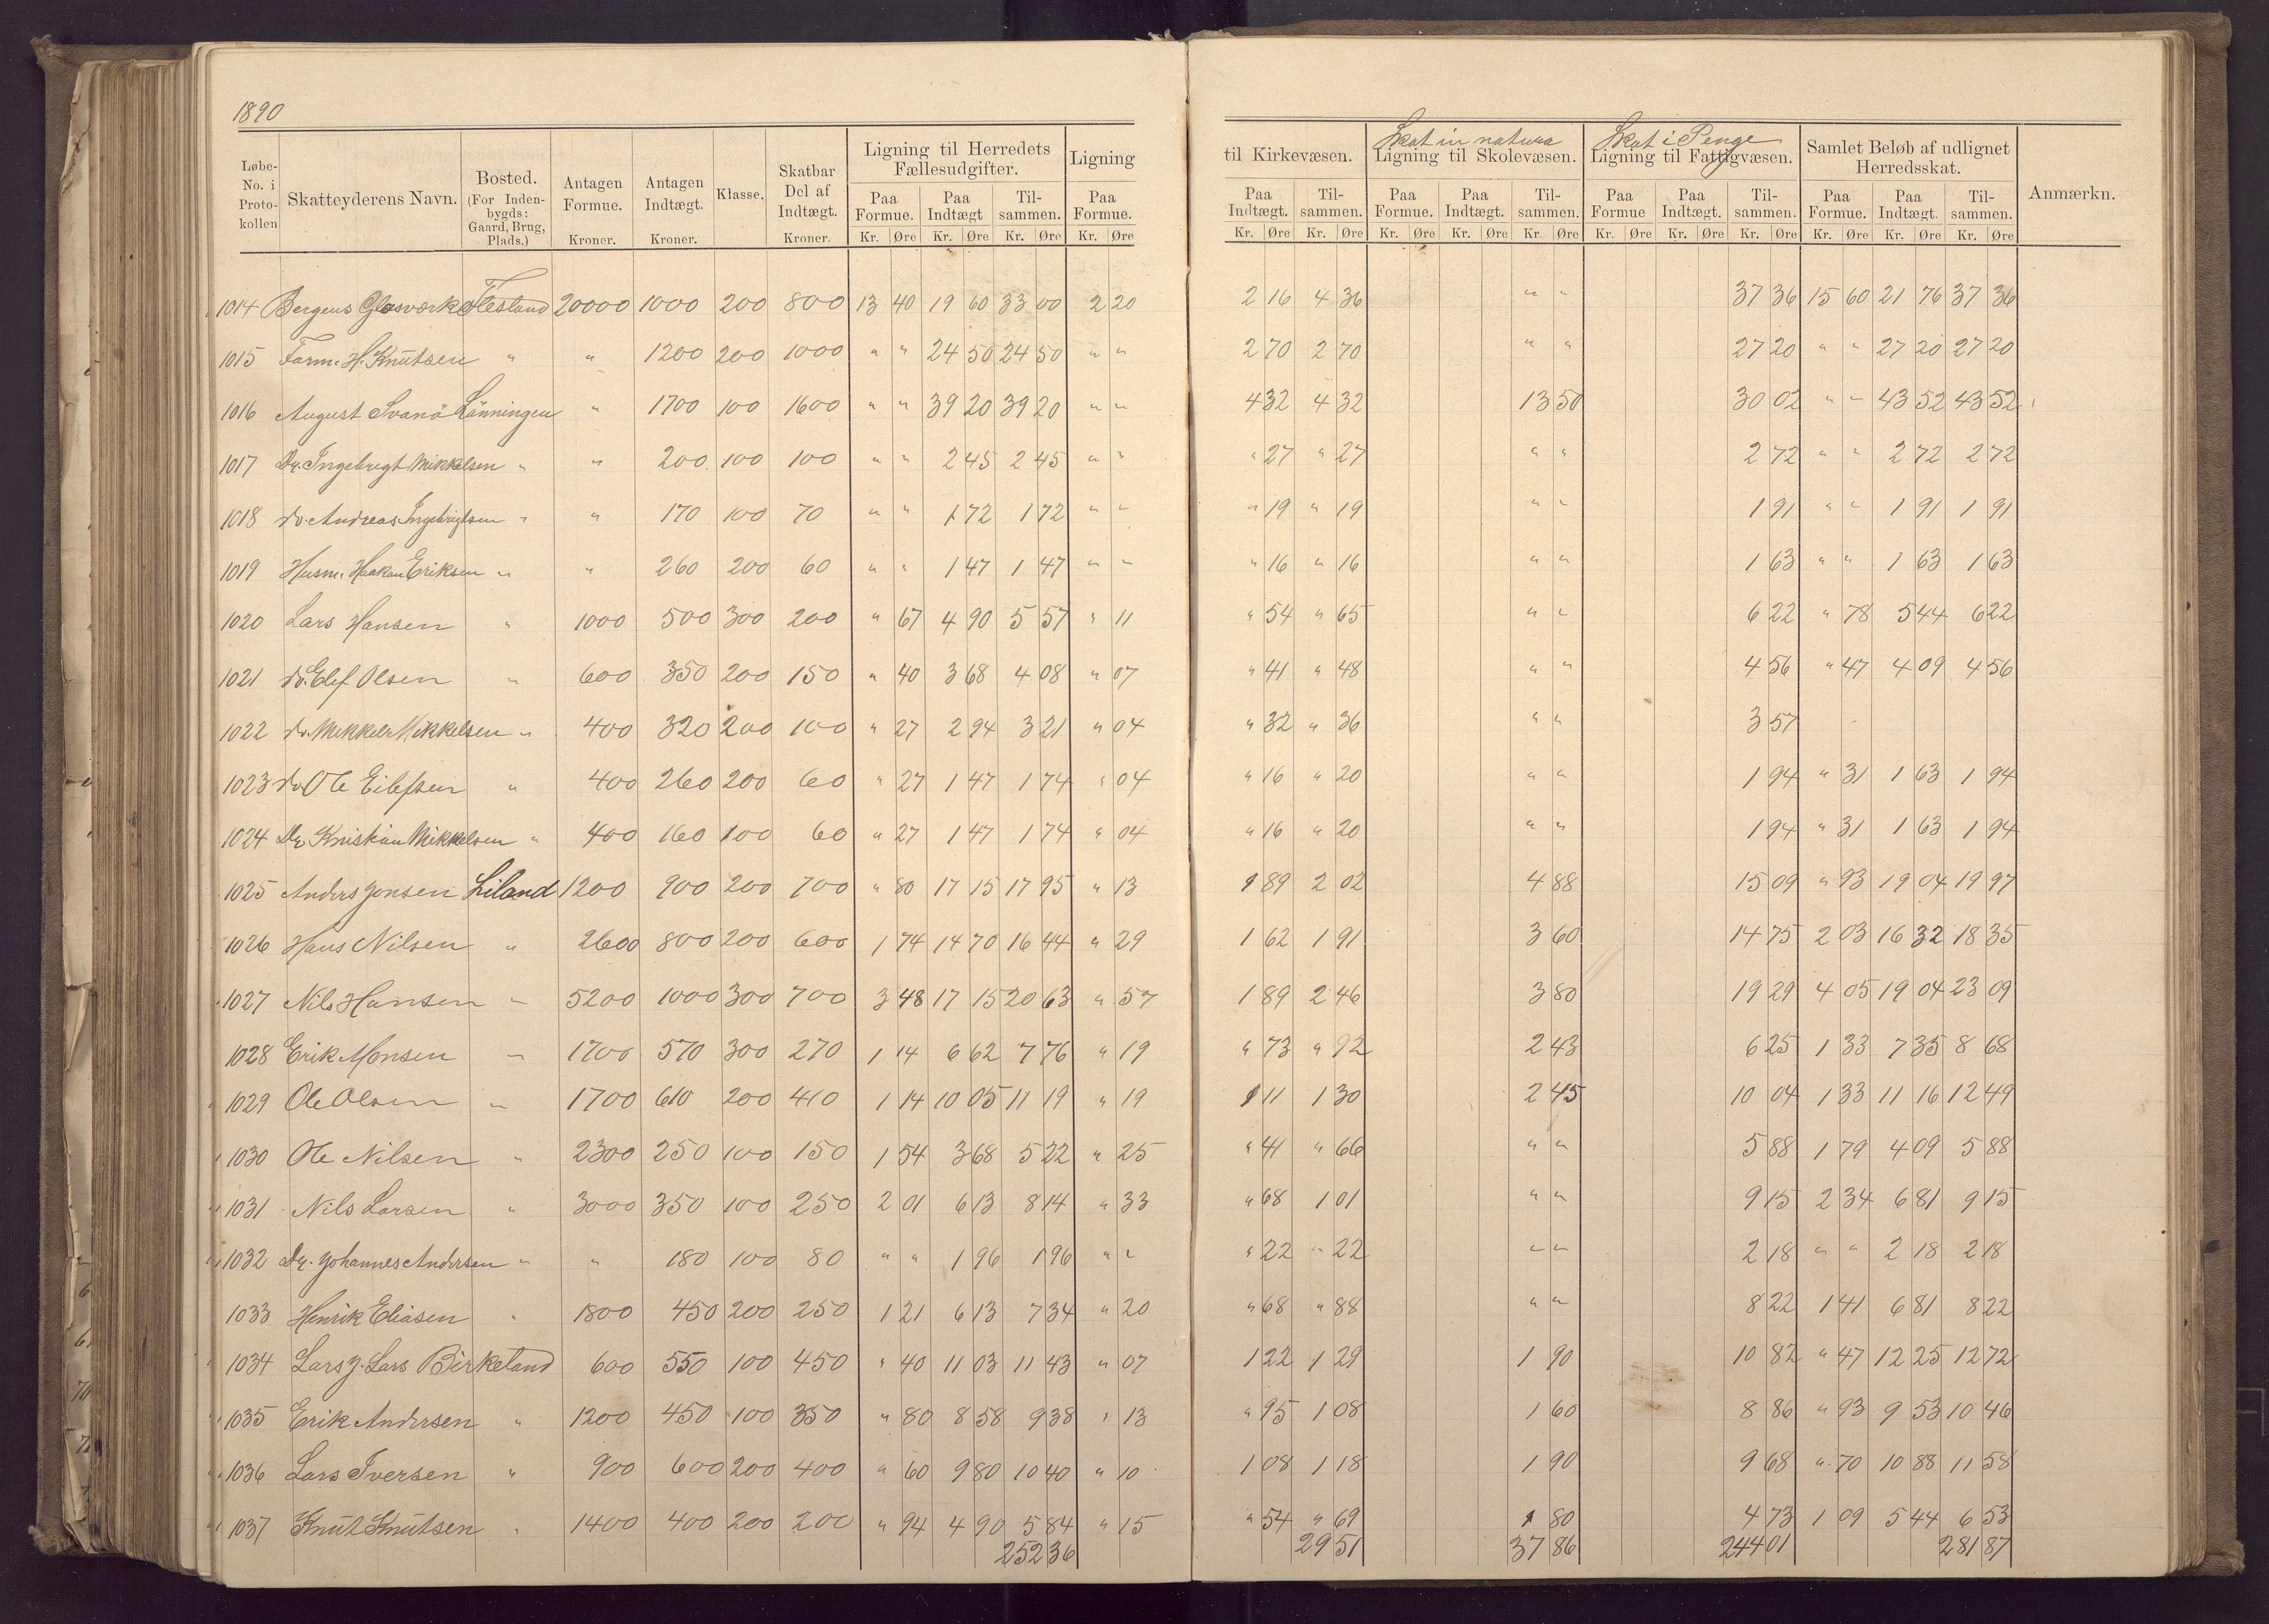 1890
Løbe-No. i Proto-kollen | Skatteyderens Navn. | Bosted. (For Inden-bygds: Gaard, Brug, Plads.) | Antagen Formue. Kroner. | Antagen Indtægt. Kroner. | Klasse. | Skatbar Del af Indtægt. Kroner. | Ligning til Herredets Fællesudgifter. Paa Formue. Kr. Øre | Paa Indtægt Kr. Øre | Til-sammen. Kr. Øre | Ligning Paa Formue. Kr. Øre | til Kirkevæsen. Paa Indtægt. Kr. Øre | Til-sammen. Kr. Øre | Skat in natura Ligning til Skolevæsen. Paa Formue. Kr. Øre | Paa Indtægt. Kr. Øre | Til-sammen. Kr. Øre | Skat i Penge Ligning til Fattigvæsen. Paa Formue Kr. Øre | Paa Indtægt. Kr. Øre | Til-sammen. Kr. Øre | Samlet Beløb af udlignet Herredsskat. Paa Formue. Kr. Øre | Paa Indtægt. Kr. Øre | Til-sammen. Kr. Øre | Anmærkn.
1014 Bergens Glasværk Flesland 20000 1000 200 800 13 40 19 60 33 00 2 20 2 16 4 36 " " 37 36 15 60 21 76 37 36
1015 Form. H. Knutsen " " 1200 200 1000 " " 24 50 24 50 " " 2 70 2 70 " " 27 20 " " 27 20 27 20
1016 August Svanö Lönningen " 1700 100 1600 " " 39 20 39 20 " " 4 32 4 32 13 50 30 02 " " 43 52 43 52
1017 Dr. Ingebregt Mikkelsen " " 200 100 100 " " 2 45 2 45 " " " 27 " 27 " " 2 72 " " 2 72 2 72
1018 do. Andreas Ingebrigtsen " " 170 100 70 " " 1 72 1 72 " " " 19 " 19 " " 1 91 " " 1 91 1 91
1019 Husm. Haakon Eriksen " " 260 200 60 " " 1 47 1 47 " " " 16 " 16 " " 1 63 " " 1 63 1 63
1020 Lars Hansen " 1000 500 300 200 " 67 4 90 5 57 " 11 " 54 " 65 " " 6 22 " 78 5 44 6 22
1021 do. Elef Olsen " 600 350 200 150 " 40 3 68 4 08 " 07 " 41 " 48 " " 4 56 " 47 4 09 4 56
1022 do. Mikkel Mikkelsen " 400 320 200 100 " 27 2 94 3 21 " 04 " 32 " 36 " " 3 57
1023 do. Ole Eilefsen " 400 260 200 60 " 27 1 47 1 74 " 04 " 16 " 20 " " 1 94 " 31 1 63 1 94
1024 Dr. Kristian Mikkelsen " 400 160 100 60 " 27 1 47 1 74 " 04 " 16 " 20 " " 1 94 " 31 1 63 1 94
1025 Anders Jonsen Liland 1200 900 200 700 " 80 17 15 17 95 " 13 1 89 2 02 4 88 15 09 " 93 19 04 19 97
1026 Hans Nilsen " 2600 800 200 600 1 74 14 70 16 44 " 29 1 62 1 91 3 60 14 75 2 03 16 32 18 35
1027 Nils Hansen " 5200 1000 300 700 3 48 17 15 20 63 " 57 1 89 2 46 3 80 19 29 4 05 19 04 23 09
1028 Erik Monsen " 1700 570 300 270 1 14 6 62 7 76 " 19 " 73 " 92 2 43 6 25 1 33 7 35 8 68
1029 Ole Olsen " 1700 610 200 410 1 14 10 05 11 19 " 19 1 11 1 30 2 45 10 04 1 33 11 16 12 49
1030 Ole Nilsen " 2300 250 100 150 1 54 3 68 5 22 " 25 " 41 " 66 " " 5 88 1 79 4 09 5 88
1031 Nils Larsen " 3000 350 100 250 2 01 6 13 8 14 " 33 " 68 1 01 " " 9 15 2 34 6 81 9 15
1032 Dr. Johannes Andersen " " 180 100 80 " " 1 96 1 96 " " " 22 " 22 " " 2 18 " " 2 18 2 18
1033 Henrik Eliasen " 1800 450 200 250 1 21 6 13 7 34 " 20 " 68 " 88 " " 8 22 1 41 6 81 8 22
1034 Lars J. Lars Birkeland 600 550 100 450 " 40 11 03 11 43 " 07 1 22 1 29 1 90 10 82 " 47 12 25 12 72
1035 Erik Andersen " 1200 450 100 350 " 80 8 58 9 38 " 13 " 95 1 08 1 60 8 86 " 93 9 53 10 46
1036 Lars Iversen " 900 600 200 400 " 60 9 80 10 40 " 10 1 08 1 18 1 90 9 68 " 70 10 88 11 58
1037 Knut Knutsen " 1400 400 200 200 " 94 4 90 5 84 " 15 " 54 " 69 1 80 4 73 1 09 5 44 6 53
252 36 29 51 37 86 244 01 281 87